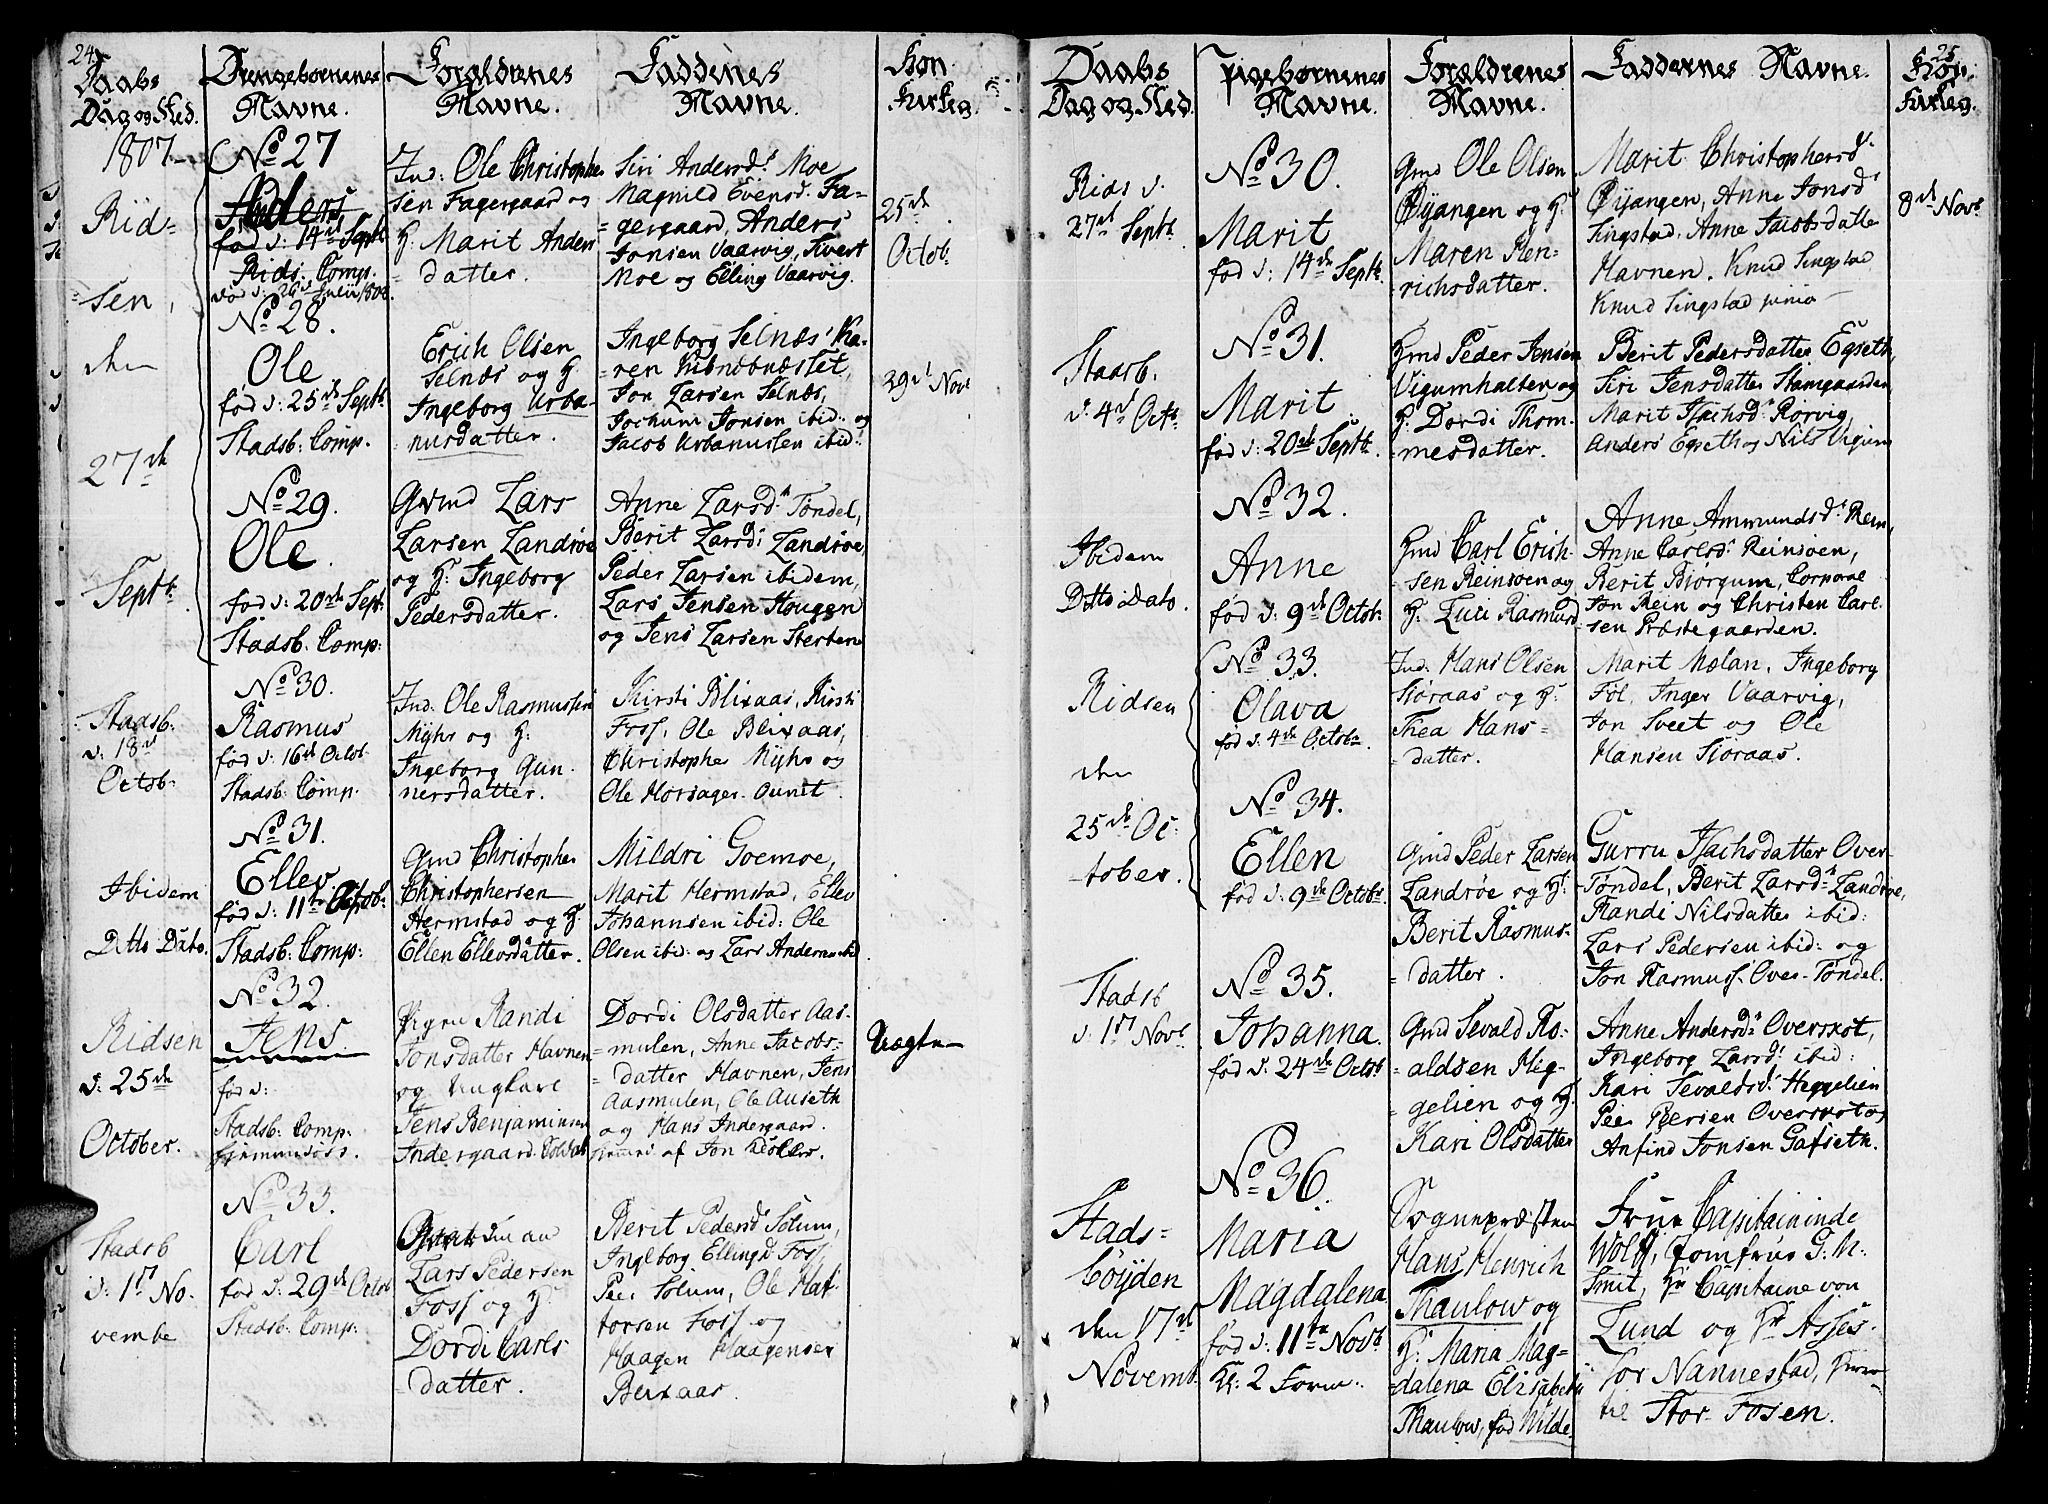 24.
Daabs
Dag og Sted.
Drengebørnenes
Navne.
Forældrenes
Navne.
Faddernes
Navne.
Kon.
Kirkeg.
1807
Rid=
=sen,
den
27de
Septb:
No 27
Anders
fød d: 14de Septb
Rids. Comp.
død d: 26de Julii 1808.
Ind: Ole Christopher
sen Fagergaard og
H: Marit Anders
=datter.
Siri Andersd: Moe
Magnild Evensd: Fa=
gergaard, Anders
Jonsen Vaarvig, Sivert
Moe og Elling Vaarvig.
25de
Octob:
No 28.
Ole
fød d: 25de Septb
Stadsb: Comp.
Erich Olsen
Selnæs og H:
Ingeborg Urba=
=nusdatter.
Ingeborg Selnæs, Ka=
=ren
Jon Larsen Selnæs,
Jochum Jonsen ibid: og
Jacob Urbanussen ibid:
29de Novb
No 29.
Ole.
fød d: 20de Sept:
Stadsb: Comp:
Gmd Lars
Larsen Landrøe
og H: Ingeborg
Pedersdatter.
Anne Larsd: Tøndel,
Berit Larsd: Landrøe,
Peder Larsen ibidem,
Lars Jensen Hougen
og Jens Larsen Sterten
Stadsb:
d: 18de
Octob:
No 30.
Rasmus
fød d: 16de Octob:
Stadsb: Comp.
Ind: Ole Rasmussen
Myhr og H:
Ingeborg Gun=
nersdatter.
Kirsti Blixaas, Kirsti
Foss, Ole Blixaas,
Christopher Myhr og
Ole Morsager. Ounet.
Ibidem
Ditto Dato.
No 31.
Ellev
fød d: 11te Octob:
Stadsb: Comp:
Gmd Christopher
Christophersen
Hermstad og H:
Ellen Ellevsdatter.
Mildri Goemoe,
Marit Hermstad, Ellev
Johannsen ibid: Ole
Olsen ibid: og Lars Andersen ibid
Ridsen
d: 25de
October.
No 32.
Jens.
fød d:
Stadsb: Comp:
hjemmedøbt.
Pigen Randi
Jonsdatter Havnen
og Ungkarl
Jens Benjaminsen
Indergaard. Soldat
Dordi Olsdatter Aas=
=mulen, Anne Jacobs=
=datter Havnen, Jens
Aasmulen, Ole Auseth
og Hans Indergaard.
hjemmed: af Jon Klokker.
Uægte
Stadsb
d: 1ste No=
vembr
No 33.
Carl
fød d: 29de Octob
Stadsb: Comp:
Lars Pedersen
Foss og H:
Dordi Carls
=datter.
Berit Pedersd: Solum,
Ingeborg Ellingsd: Foss,
Peer Solum, Ole Haf=
torsen Foss og
Haagen Haagensen
Blixaas.
25
Daabs
Dag og Sted.
Pigebørnenes
Navne.
Forældrenes
Navne.
Faddernes Navne.
Kon.
Kirkeg.
Rids d.
27de Septb:
No 30.
Marit
fød d: 14de Septb:
Gmd Ole Olsen
Øyangen og H:
Maren Hen=
richsdatter.
Marit Christophersd:
Øyangen, Anne Jonsd:
Singstad, Anne Jacobsdatter
Havnen. Knud Singstad
Knud Singstad junior
8de Novb
Stadsb.
d: 4de Octb
No 31.
Marit.
fød d: 20de Septb:
Gmd Peder Jensen
Vigumhalten og
H: Dordi Thom=
=mesdatter.
Berit Pedersdatter Egseth,
Siri Jensdatter Stamgaarden
Marit Isachsd: Rørvig,
Anders Egseth og Nils Vigum
Ibidem
Ditto Dato.
No 32.
Anne
fød d: 9de Octob:
Gmd Carl Erich=
=sen Reinsøen og
H: Luci Rasmusd:
Anne Ammundsd: Rein,
Anne Carlsd: Reinsøen,
Berit Biørgum, Corporal
Jon Rein og Christen Carl=
=sen Præstegaarden.
Ridsen
den
25de Oc=
=tober.
No 33.
Olava
fød d: 4de Octob:
Ind: Hans Olsen
Sioraas og H:
Thea Hans=
=datter.
Marit Mælan, Ingeborg
Føl, Inger Vaarvig,
Jon Sveet og Ole
Hansen Sioraas.
No 34.
Ellen
fød d: 9de Octob:
Gmd Peder Larsen
Landrøe og H:
Berit Rasmus=
=datter.
Gurru Isachsdatter Over=
=Tøndel, Berit Larsd: Landrøe,
Randi Nilsdatter ibid:
Lars Pedersen ibid: og
Jon Rasmuss. Over-Tøndel.
Stadsb
d: 1ste Novb.
No 35.
Johanna.
fød d: 24de Octob
Gmd Sevald Ro=
=aldsen Heg=
=gelien og H:
Kari Olsdatter
Anne Andersd: Overskot,
Ingeborg Larsd: ibid:
Kari Sevaldsd: Heggelien
Peer Peersen Overskot og
Anfind Jonsen Gafseth.
Stads=
bøyden
den 17de
Novemb.
No 36.
Maria
Magdalena
fød d: 11te Novb
Kl: 2 Form:
Sognepræsten
Hans Henrich
Thaulow og
H: Maria Mag=
=dalena Elisabeth
Thaulow, fød Wilde.
Frue Capitaininde
Wolff, Jomfrue G: M:
Smit, Hr Capitaine von
Lund og Hr Asses=
sor Nannestad,
til Stor-Fosen.